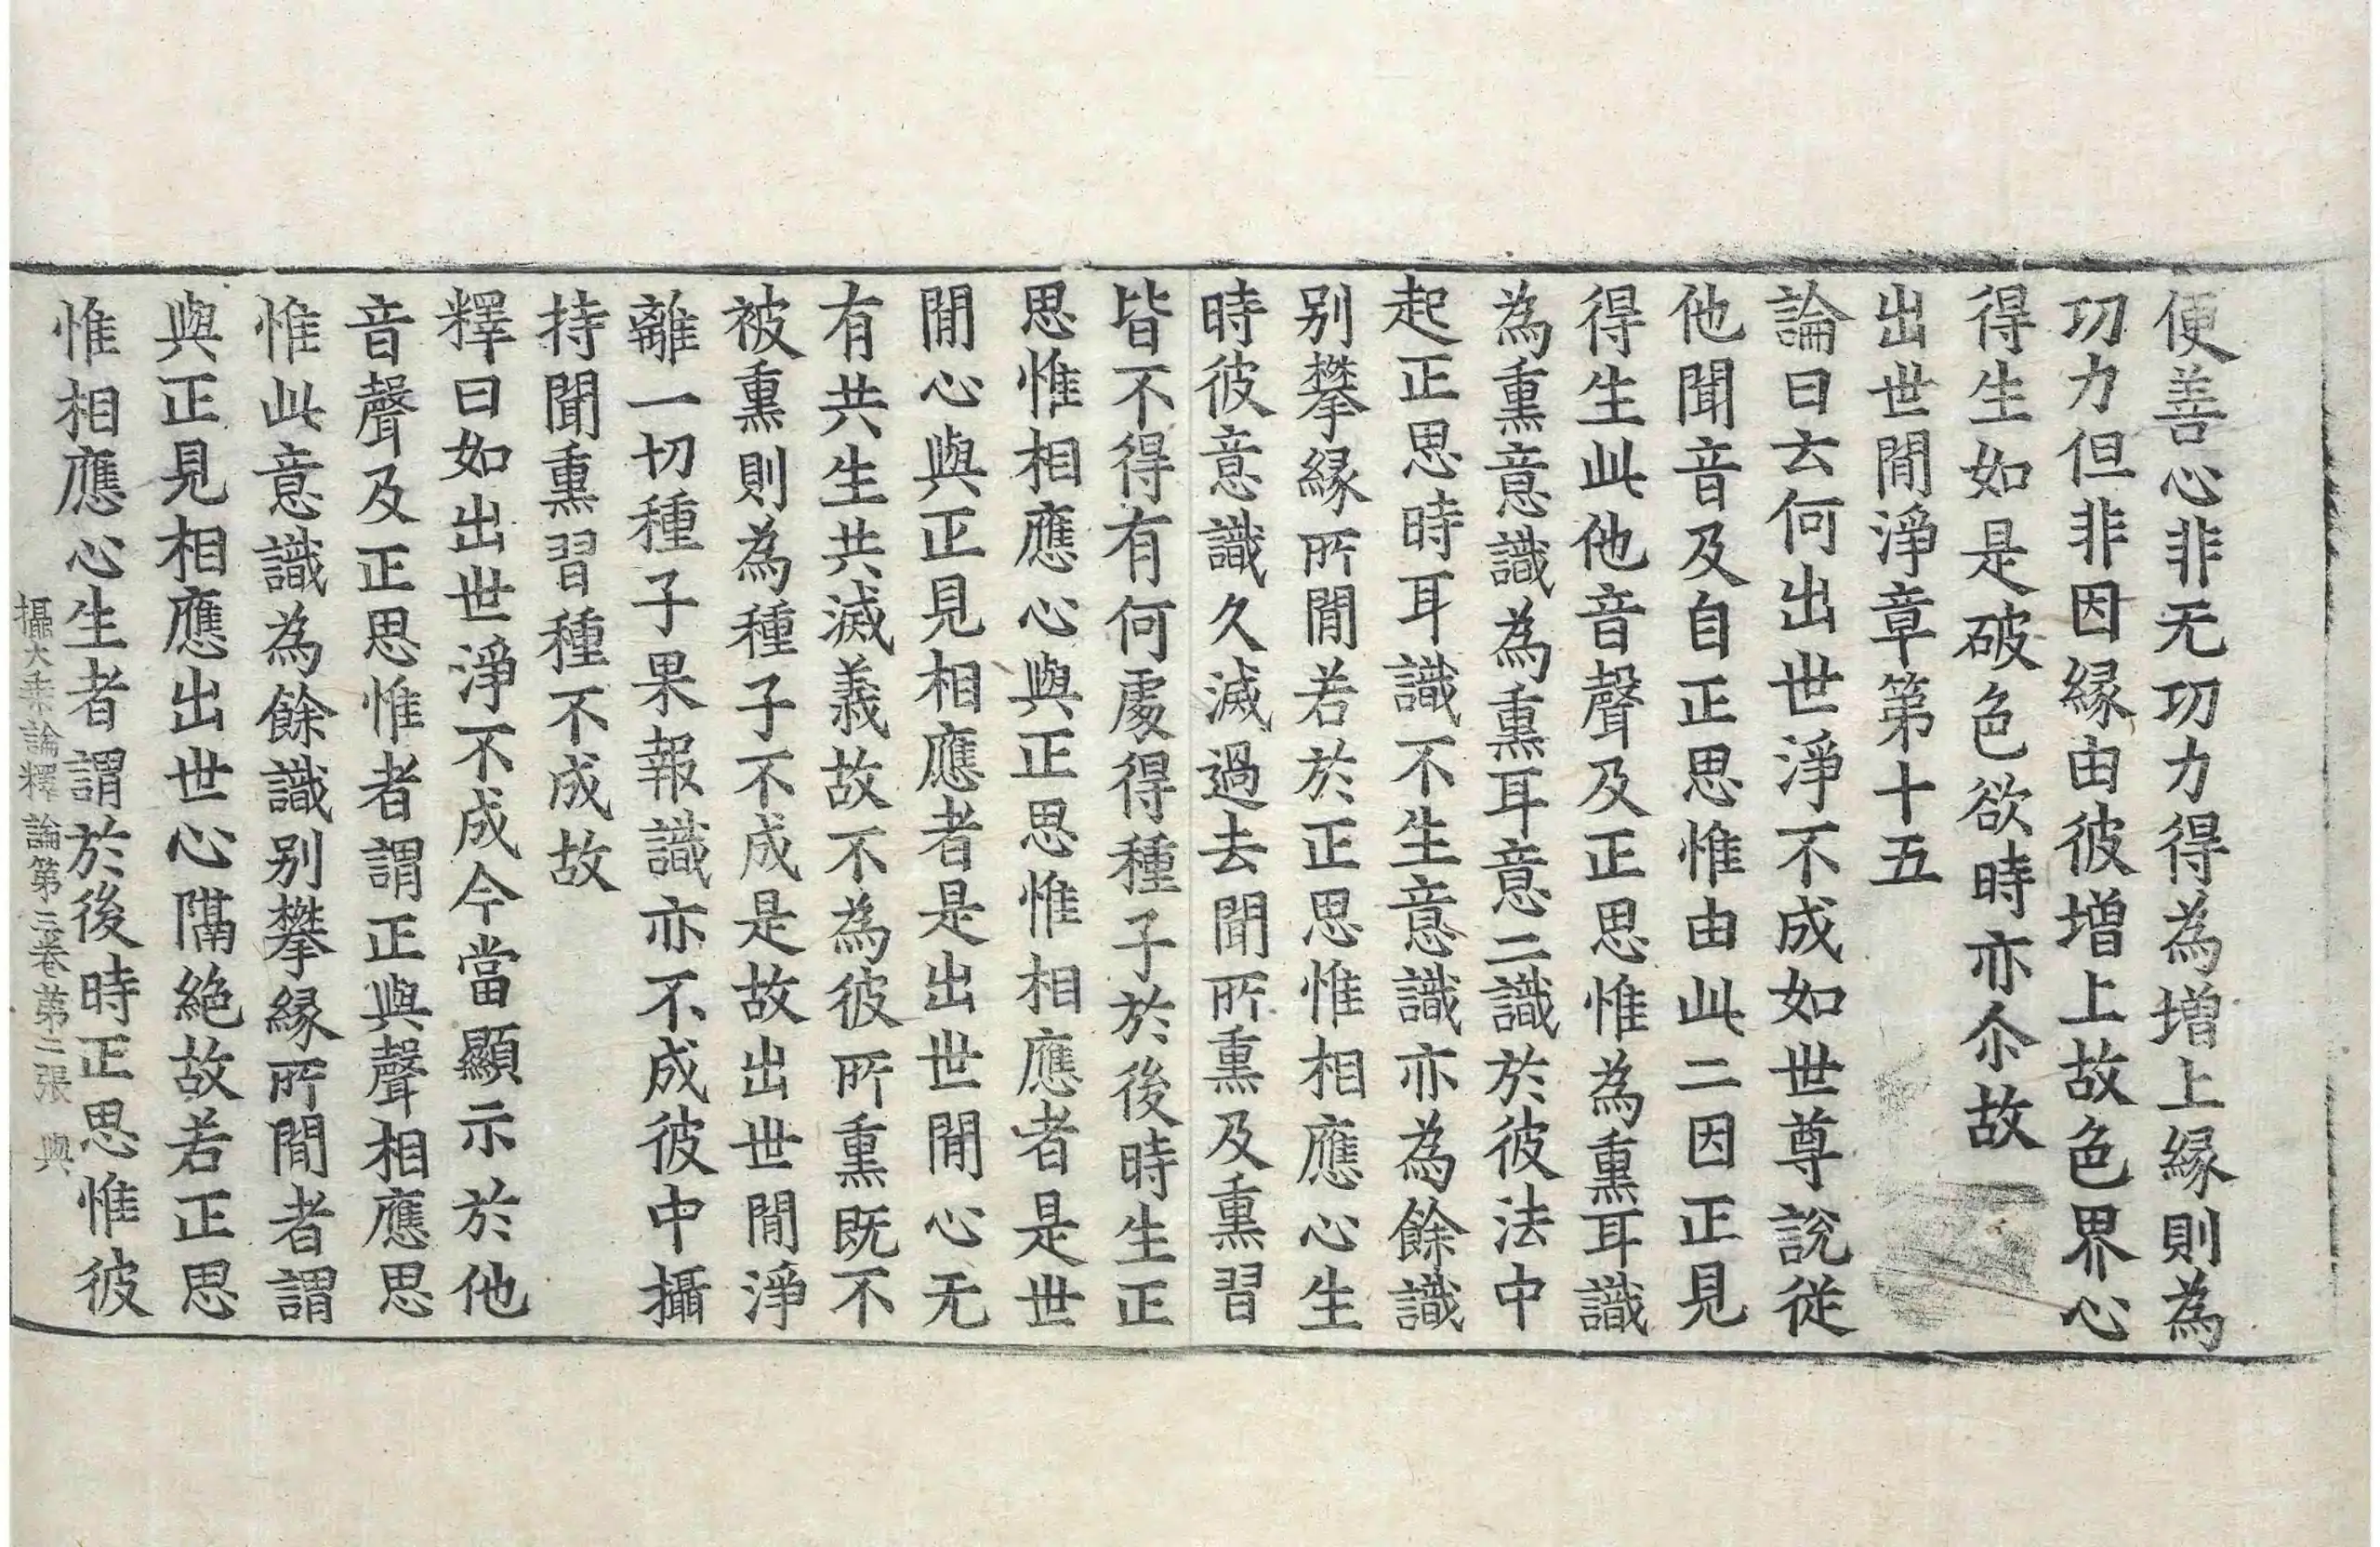 便善心非无功力得為增上緣則為
功力但非因緣由彼增上故色界心
得生如是破色欲時亦尒故
出世閒淨章第十五
論曰云何出世淨不成如世尊說從
他聞音及自正思惟由此二因正見
得生此他音聲及正思惟為熏耳識
為熏意識為熏耳意二識於彼法中
起正思時耳識不生意識亦為餘識
別攀緣所閒若於正思惟相應心生
時彼意識久滅過去聞所熏及熏習
皆不得有何處得種子於後時生正
思惟相應心與正思惟相應者是世
閒心與正見相應者是出世閒心无
有共生共滅義故不為彼所熏既不
被熏則為種子不成是故出世閒淨
離一切種子果報識亦不成彼中攝
持聞熏習種不成故
釋曰如出世淨不成今當顯示於他
音聲及正思惟者謂正與聲相應思
惟此意識為餘識別攀緣所閒者謂
與正見相應出世心隔絕故若正思
惟相應心生者謂於後時正思惟彼
攝大乘論釋論第三卷第二張 與